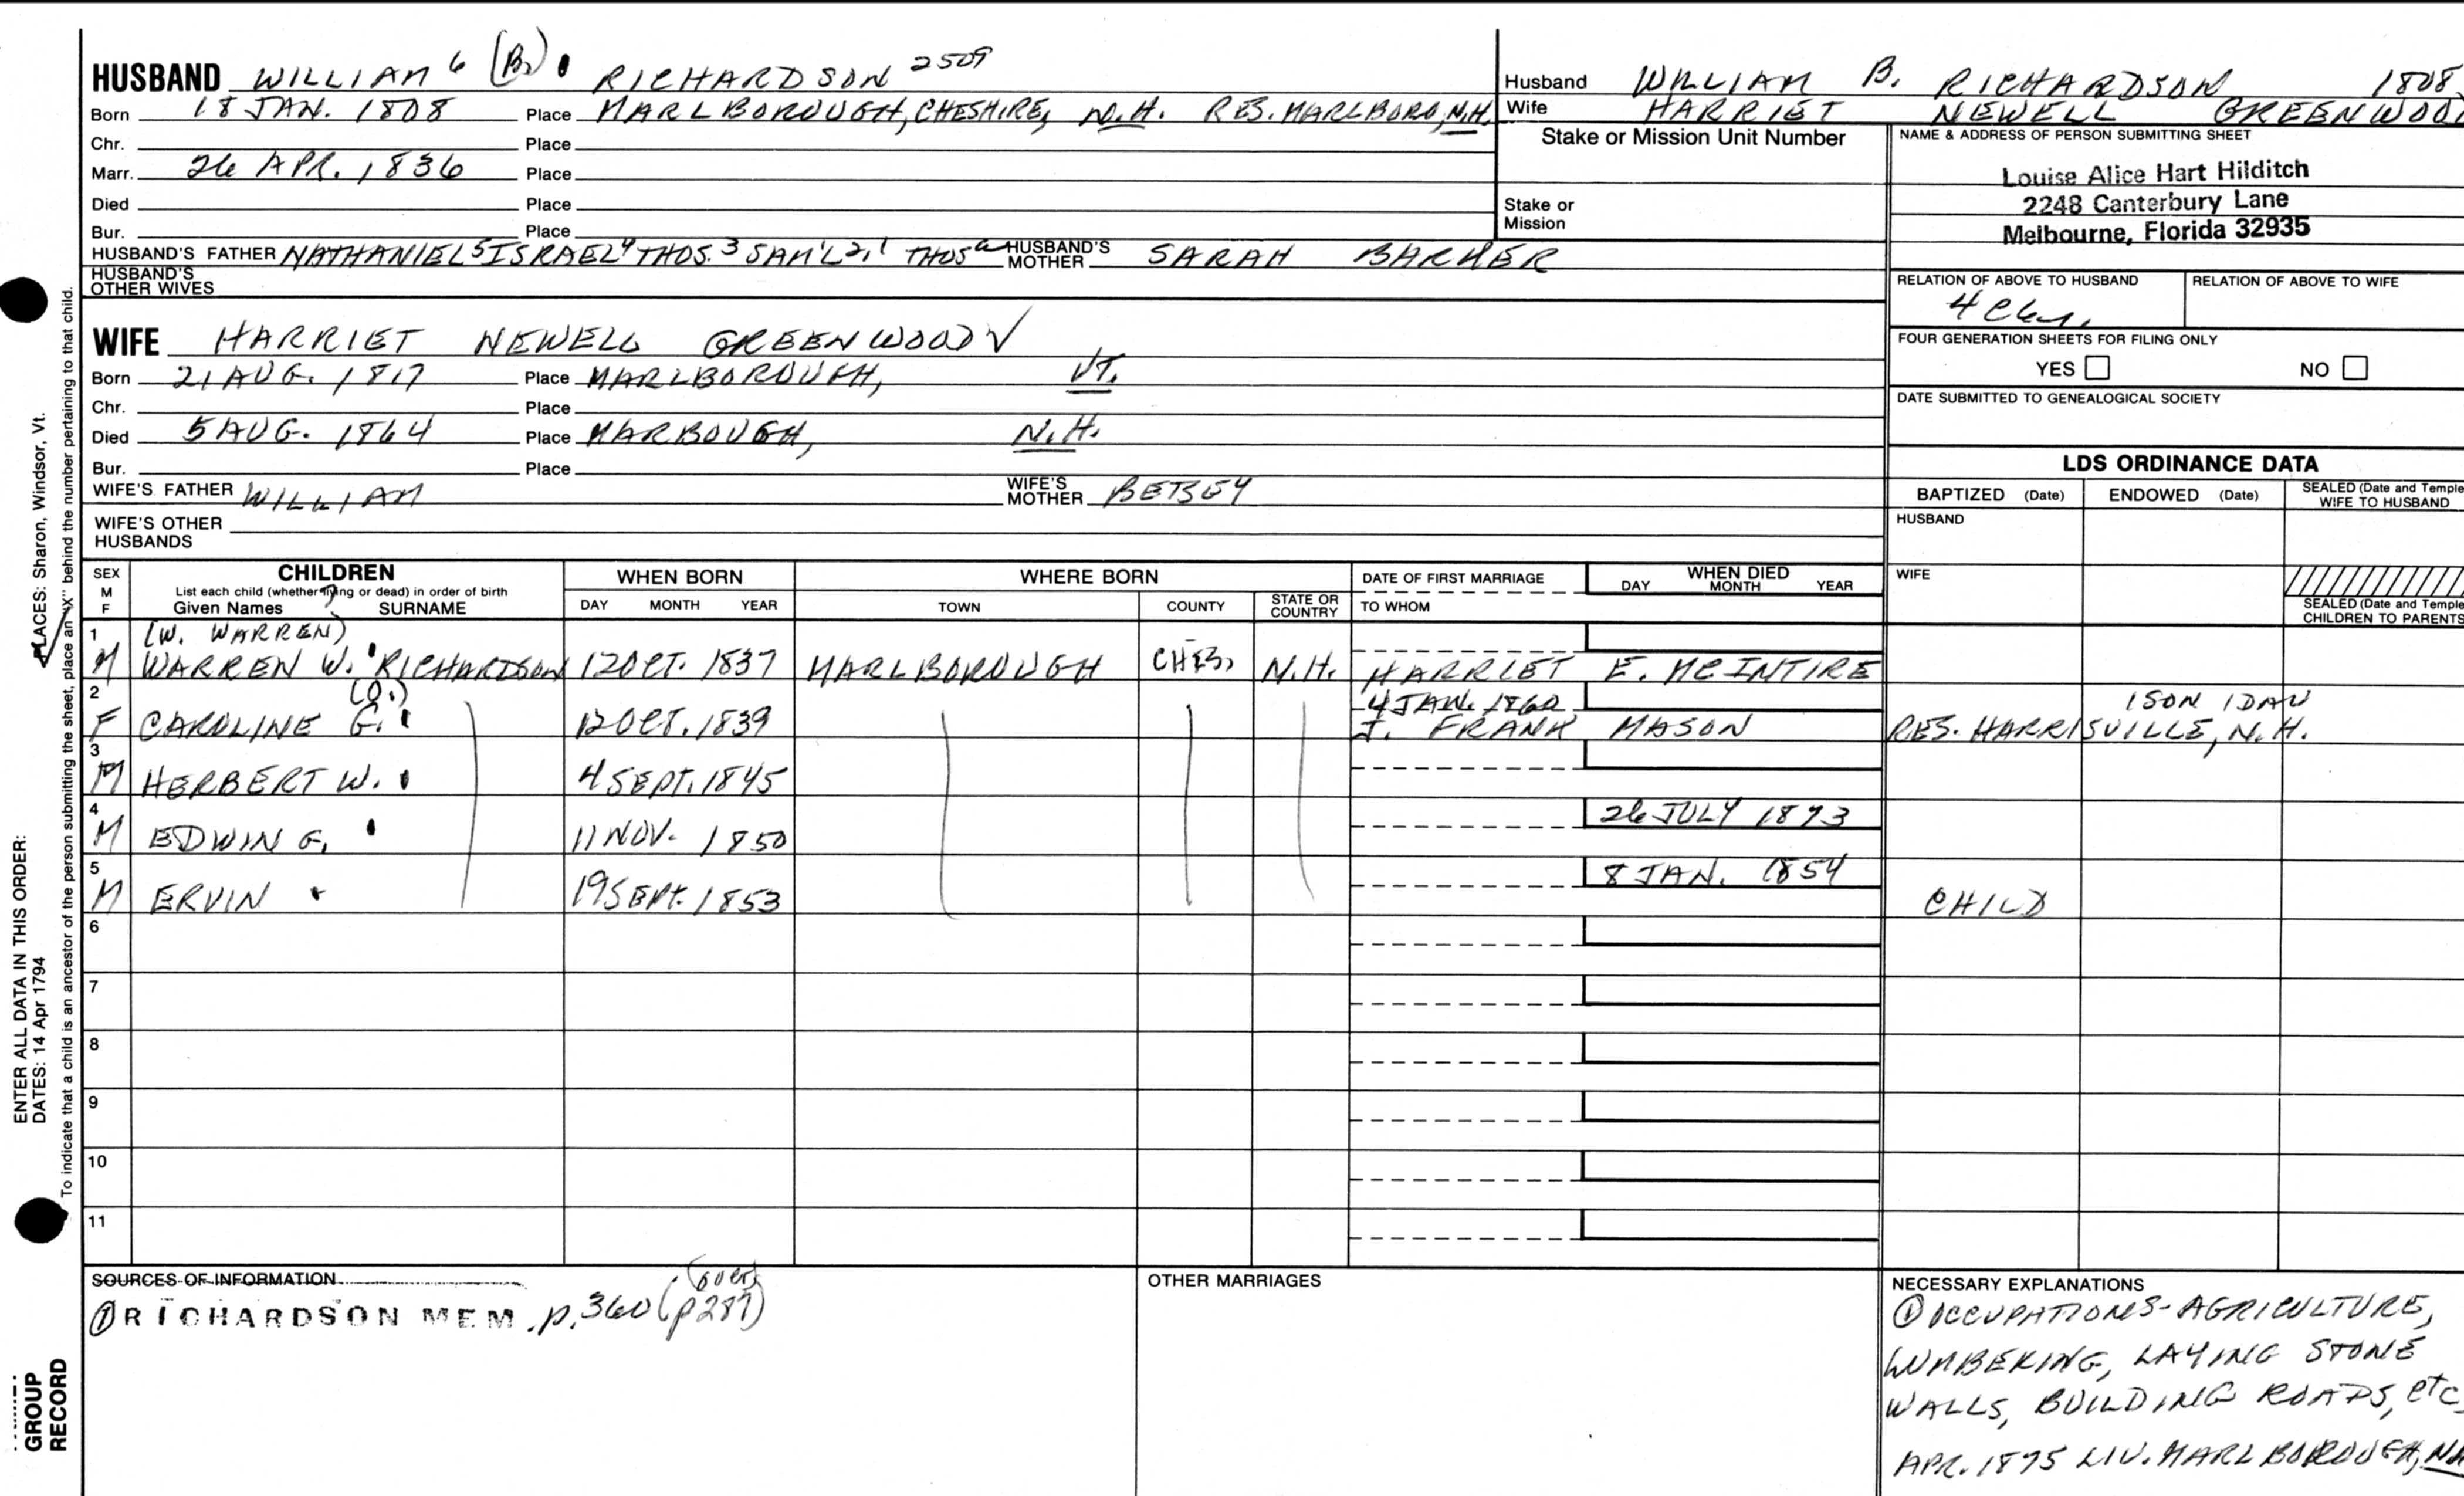 HUSBAND WILLIAM 6 (B.) RICHARDSON 2509
Born 18 JAN. 1808 Place MARLBOROUGH, CHESHIRE, N.H. RES. MARLBORO, N.H.
Chr. Place
Marr. 26 APR. 1836 Place
Died Place
Bur. Place
HUSBAND'S FATHER NATHANIEL 5 ISRAEL 4 THOS. 3 SAM'L 2,1 THOS a HUSBAND'S MOTHER SARAH BARKER
HUSBAND'S OTHER WIVES
Husband WILLIAM B. RICHARDSON 1808
Wife HARRIET NEWELL GREENWOOD
Stake or Mission Unit Number
Stake or Mission
NAME & ADDRESS OF PERSON SUBMITTING SHEET
Louise Alice Hart Hilditch
2248 Canterbury Lane
Melbourne, Florida 32935
RELATION OF ABOVE TO HUSBAND RELATION OF ABOVE TO WIFE
FOUR GENERATION SHEETS FOR FILING ONLY
YES NO
DATE SUBMITTED TO GENEALOGICAL SOCIETY
WIFE HARRIET NEWELL GREENWOOD
Born 21 AUG. 1817 Place MARLBOROUGH, VT.
Chr. Place
Died 5 AUG. 1864 Place MARBOUGH, N.H.
Bur. Place
WIFE'S FATHER WILLIAM WIFE'S MOTHER BETSEY
WIFE'S OTHER HUSBANDS
LDS ORDINANCE DATA
BAPTIZED (Date) ENDOWED (Date) SEALED (Date and Temple) WIFE TO HUSBAND
HUSBAND
WIFE
SEALED (Date and Temple) CHILDREN TO PARENTS
SEX M F
CHILDREN
List each child (whether living or dead) in order of birth
Given Names SURNAME
WHEN BORN
DAY MONTH YEAR
WHERE BORN
TOWN COUNTY STATE OR COUNTRY
DATE OF FIRST MARRIAGE
TO WHOM
WHEN DIED
DAY MONTH YEAR
1 (W. WARREN)
M WARREN W. RICHARDSON 12 OCT. 1837 MARLBOROUGH CHES, N.H. HARRIET E. MCINTIRE
2 (O.) 4 JAN. 1860 1 SON 1 DAU
F CAROLINE G. 12 OCT. 1839 J. FRANK MASON RES. HARRISVILLE, N.H.
3
M HERBERT W. 4 SEPT. 1845
4 26 JULY 1873
M EDWIN G. 11 NOV. 1850
5 8 JAN. 1854
M ERVIN 19 SEPT. 1853 CHILD
6
7
8
9
10
11
SOURCES OF INFORMATION
(over)
① RICHARDSON MEM. p. 360 (p 287)
OTHER MARRIAGES
NECESSARY EXPLANATIONS
① OCCUPATIONS - AGRICULTURE,
LUMBERING, LAYING STONE
WALLS, BUILDING ROADS, etc.
APR. 1875 LIV. MARLBOROUGH, NH
PLACES: Sharon, Windsor, Vt.
ENTER ALL DATA IN THIS ORDER:
DATES: 14 Apr 1794
To indicate that a child is an ancestor of the person submitting the sheet, place an "X" behind the number pertaining to that child.
GROUP
RECORD